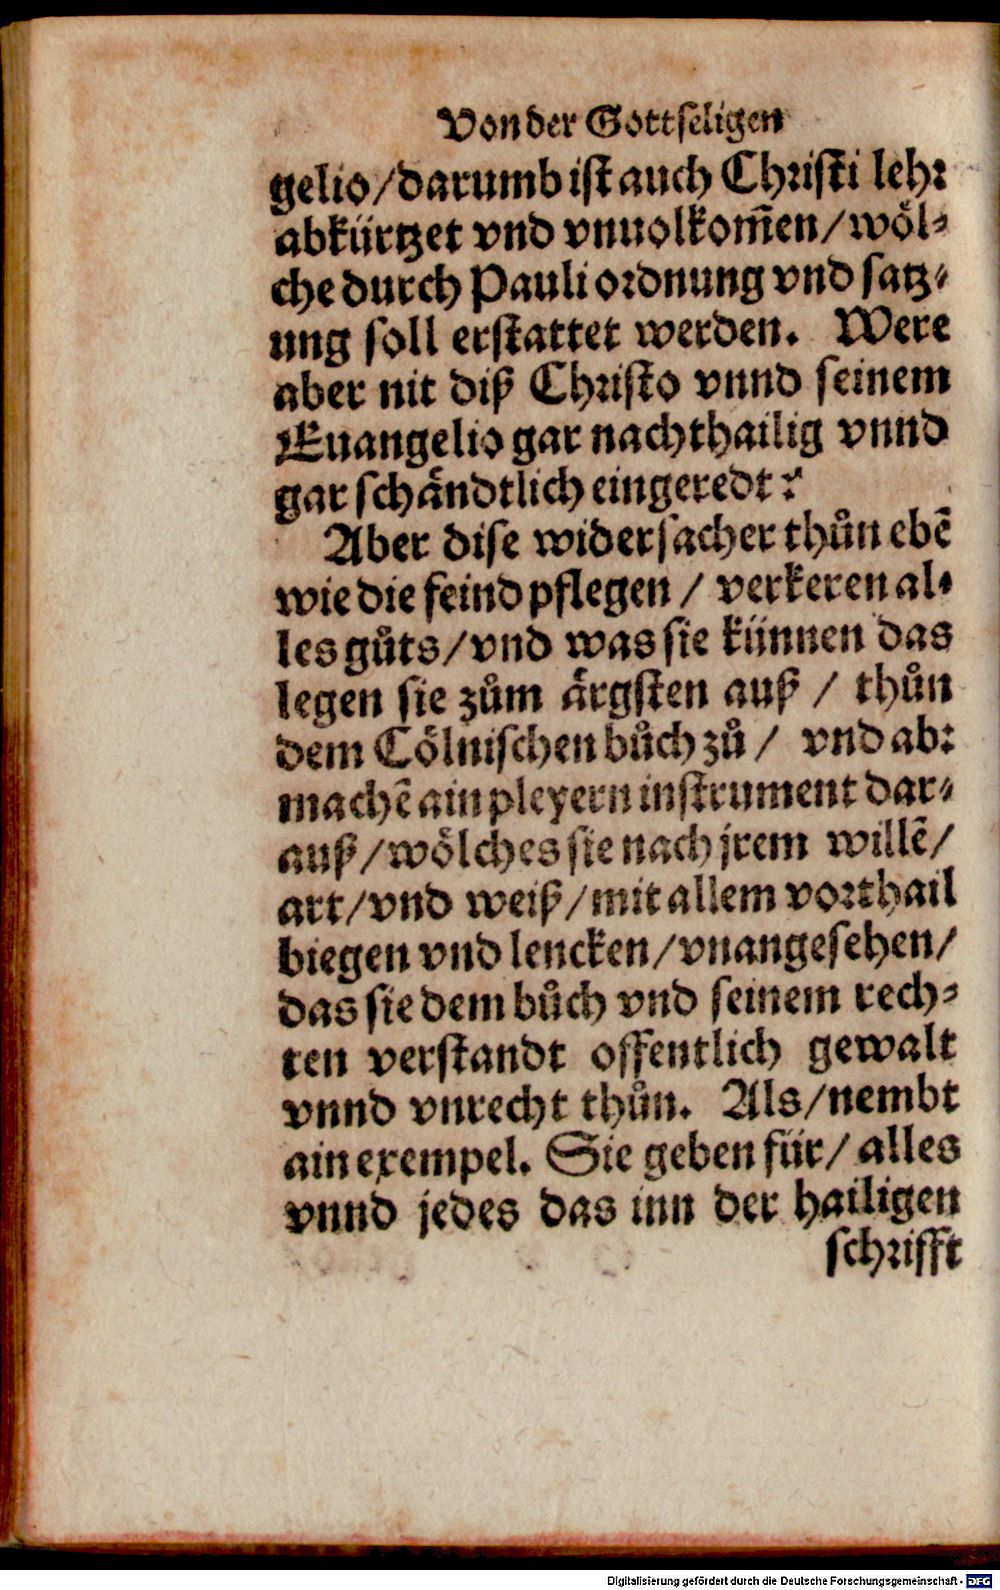 Von der Gottseligen
gelio/darumb ist auch Christi lehr
abkürtzet vnd vnuolkom̃en/wöl-
che durch Pauli ordnung vnd satz-
ung soll erstattet werden. Were
aber nit diß Christo vnnd seinem
Euangelio gar nachthailig vnnd
gar schändtlich eingeredt?
Aber dise widersacher thůn ebẽ
wie die feind pflegen / verkeren al-
les gůts/vnd was sie künnen das
legen sie zům ärgsten auß / thůn
dem Cölnischen bůch zů / vnd ab:
machẽ ain pleyern instrument dar-
auß/wölches sie nach jrem willẽ/
art/vnd weiß/mit allem vorthail
biegen vnd lencken/vnangesehen/
das sie dem bůch vnd seinem rech-
ten verstandt offentlich gewalt
vnnd vnrecht thůn. Als/nembt
ain exempel. Sie geben für/ alles
vnnd jedes das inn der hailigen
schrifft
Digitalisierung gefördert durch die Deutsche Forschungsgemeinschaft - DFG